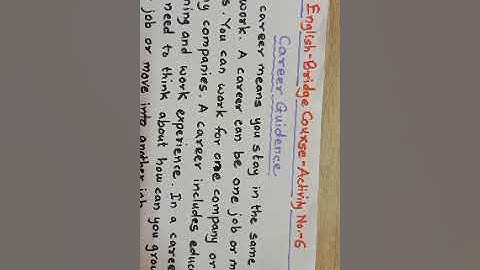 English-Bridge Course-Activity No.-6
Career Guidence
career means you stay in the same
work. A career can be one job or m
s. You can work for one company or
ny companies. A career includes educ
ning and work experience. In a caree
need to think about how can you grow
job or move into another job